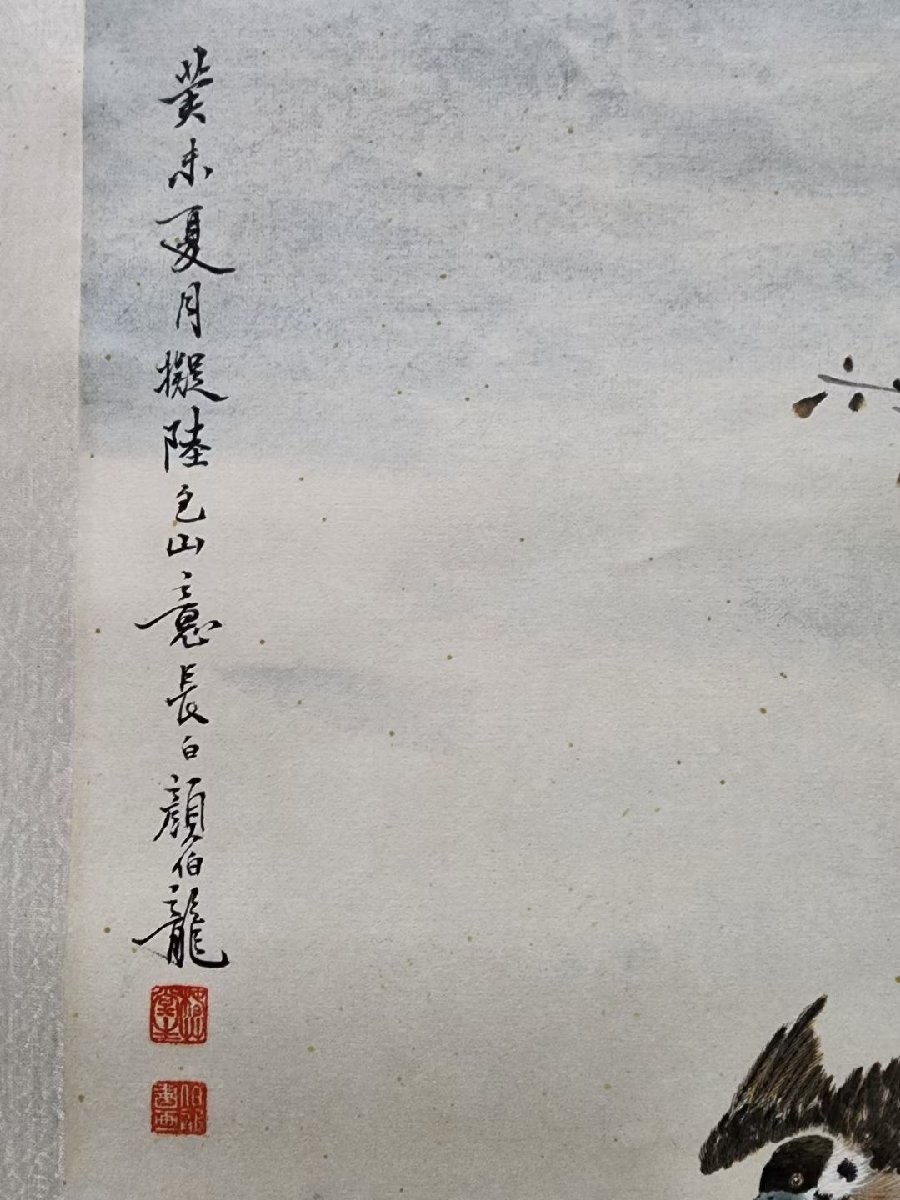 癸未夏月擬陸包山意長白顏伯龍